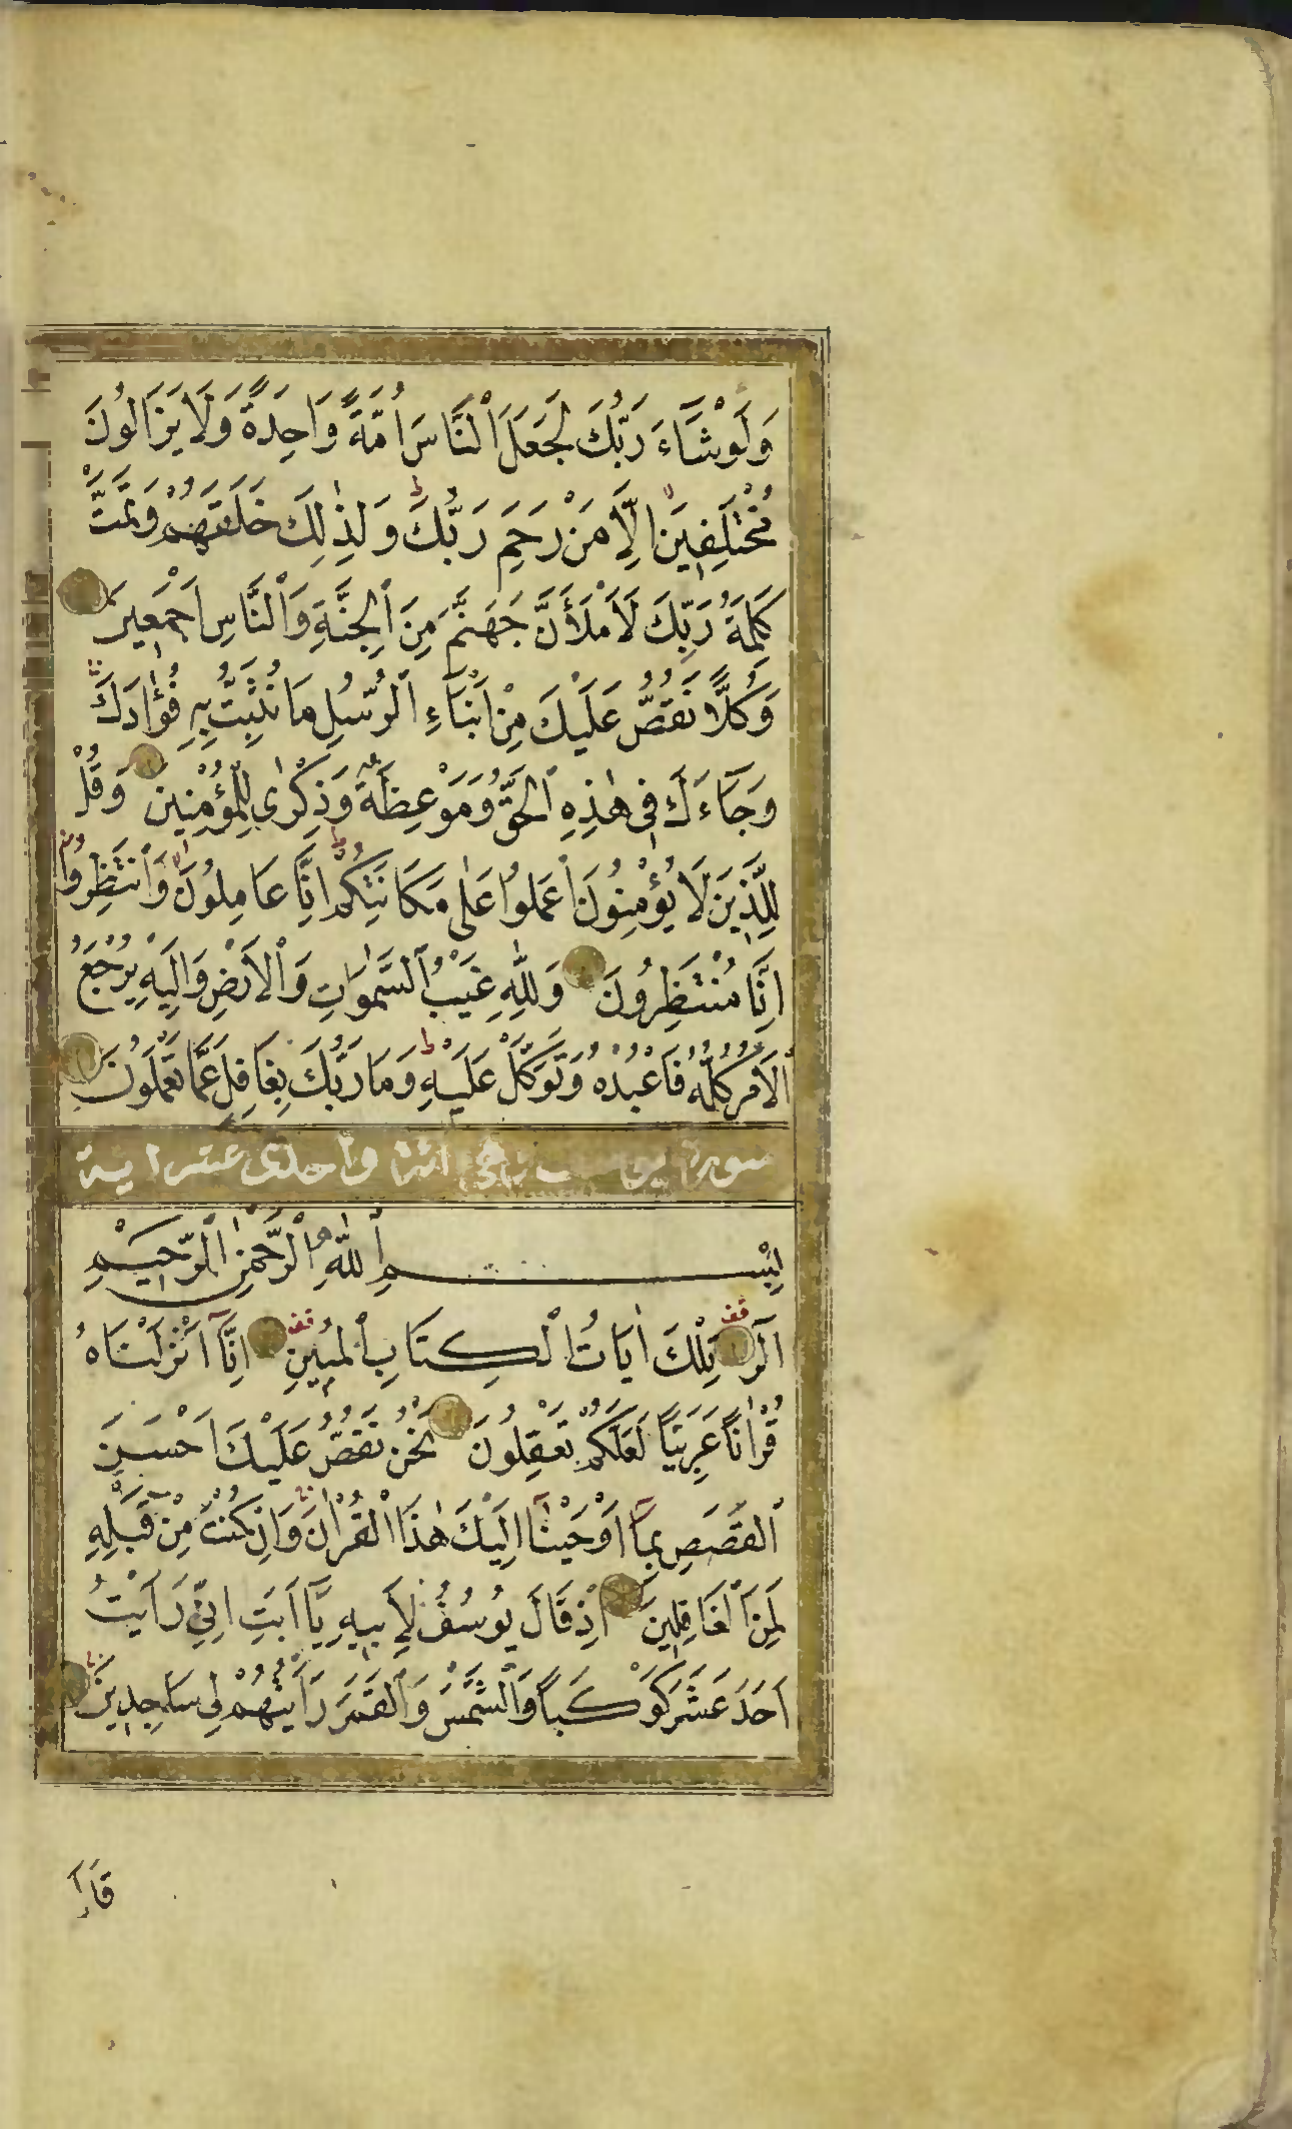 وَلَوْ شَآءَ رَبُّكَ لَجَعَلَ ٱلنَّاسَ اُمَّةً وَاحِدَةً وَلَا يَزَالُونَ
مُخْتَلِفِينَ اِلَّا مَنْ رَحِمَ رَبُّكَ وَلِذٰلِكَ خَلَقَهُمْ وَتَمَّتْ
كَلِمَةُ رَبِّكَ لَاَمْلَأَنَّ جَهَنَّمَ مِنَ ٱلْجِنَّةِ وَٱلنَّاسِ اَجْمَعِينَ
وَكُلًّا نَقُصُّ عَلَيْكَ مِنْ اَنْبَآءِ ٱلرُّسُلِ مَا نُثَبِّتُ بِهِ فُؤَادَكَ
وَجَآءَكَ فِى هٰذِهِ ٱلْحَقُّ وَمَوْعِظَةٌ وَذِكْرٰى لِلْمُؤْمِنِينَ وَقُلْ
لِلَّذِينَ لَا يُؤْمِنُونَ ٱعْمَلُوا عَلٰى مَكَانَتِكُمْ اِنَّا عَامِلُونَ وَٱنْتَظِرُوا
اِنَّا مُنْتَظِرُونَ وَلِلّٰهِ غَيْبُ ٱلسَّمٰوَاتِ وَٱلْاَرْضِ وَاِلَيْهِ يُرْجَعُ
ٱلْاَمْرُ كُلُّهُ فَاعْبُدْهُ وَتَوَكَّلْ عَلَيْهِ وَمَا رَبُّكَ بِغَافِلٍ عَمَّا تَعْمَلُونَ
سورة يوسف وهى مائة واحدى عشر اية
بِسْمِ ٱللّٰهِ ٱلرَّحْمٰنِ ٱلرَّحِيمِ
الٓرٰ قف تِلْكَ اٰيَاتُ ٱلْكِتَابِ ٱلْمُبِينِ قف اِنَّآ اَنْزَلْنَاهُ
قُرْاٰنًا عَرَبِيًّا لَعَلَّكُمْ تَعْقِلُونَ نَحْنُ نَقُصُّ عَلَيْكَ اَحْسَنَ
ٱلْقَصَصِ بِمَآ اَوْحَيْنَآ اِلَيْكَ هٰذَا ٱلْقُرْاٰنَ وَاِنْ كُنْتَ مِنْ قَبْلِهِ
لَمِنَ ٱلْغَافِلِينَ اِذْ قَالَ يُوسُفُ لِاَبِيهِ يَآ اَبَتِ اِنِّى رَاَيْتُ
اَحَدَ عَشَرَ كَوْكَبًا وَٱلشَّمْسَ وَٱلْقَمَرَ رَاَيْتُهُمْ لِى سَاجِدِينَ